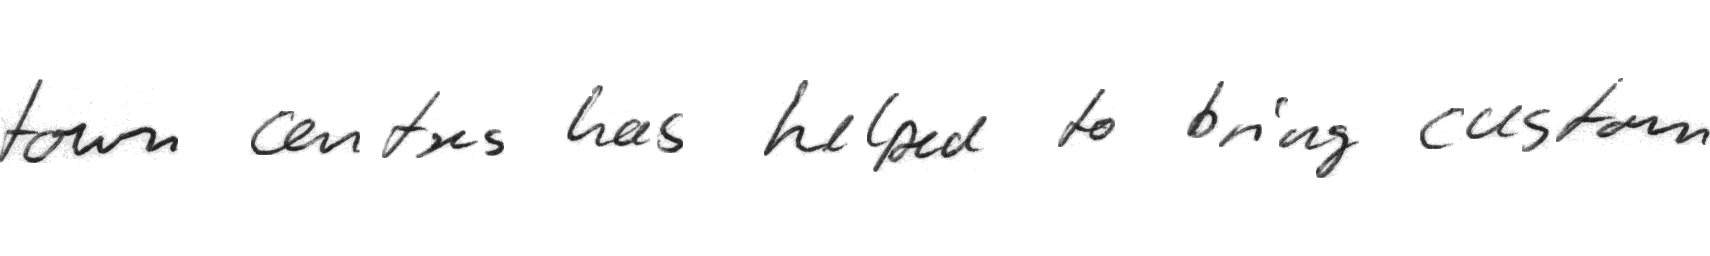 town centres has helped to bring custom